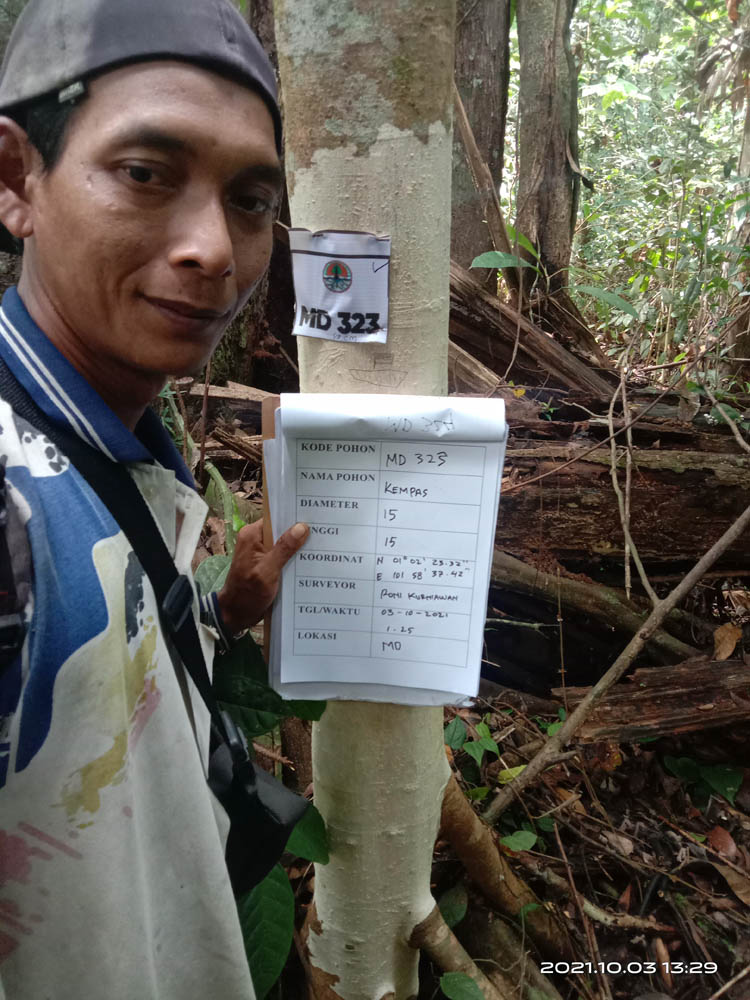 MD 323
KODE POHON MD 323
NAMA POHON KEMPAS
DIAMETER 15
TINGGI 15
KOORDINAT N 01° 02' 23.32"
E 101 58' 37.42"
SURVEYOR ROMI KURNIAWAN
TGL/WAKTU 03-10-2021
1.25
LOKASI MD
2021.10.03 13:29